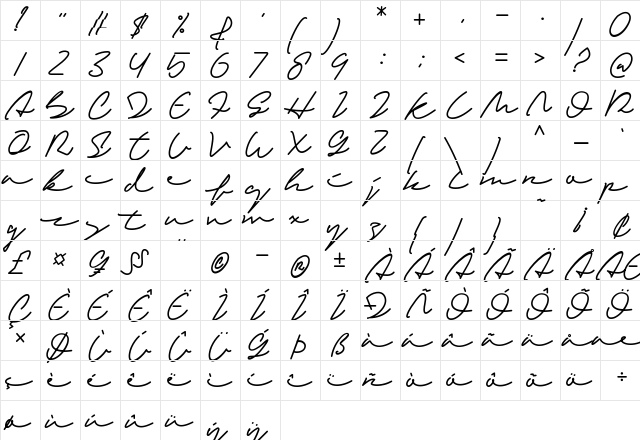 ! " # $ % & ' ( ) * + , − . / 0
1 2 3 4 5 6 7 8 9 : ; < = > ? @
A B C D E F G H I J K L M N O P
Q R S T U V W X Y Z [ \ ] ^ _ `
a b c d e f g h i j k l m n o p
q r s t u v w x y z { | } ~ ¡ ¢
£ ¤ ¥ § ¨ © ¯ ® ± À Á Â Ã Ä Å Æ
Ç È É Ê Ë Ì Í Î Ï Ð Ñ Ò Ó Ô Õ Ö
× Ø Ù Ú Û Ü Ý Þ ß à á â ã ä å æ
ç è é ê ë ì í î ï ñ ò ó ô õ ö ÷
ø ù ú û ü ý ÿ